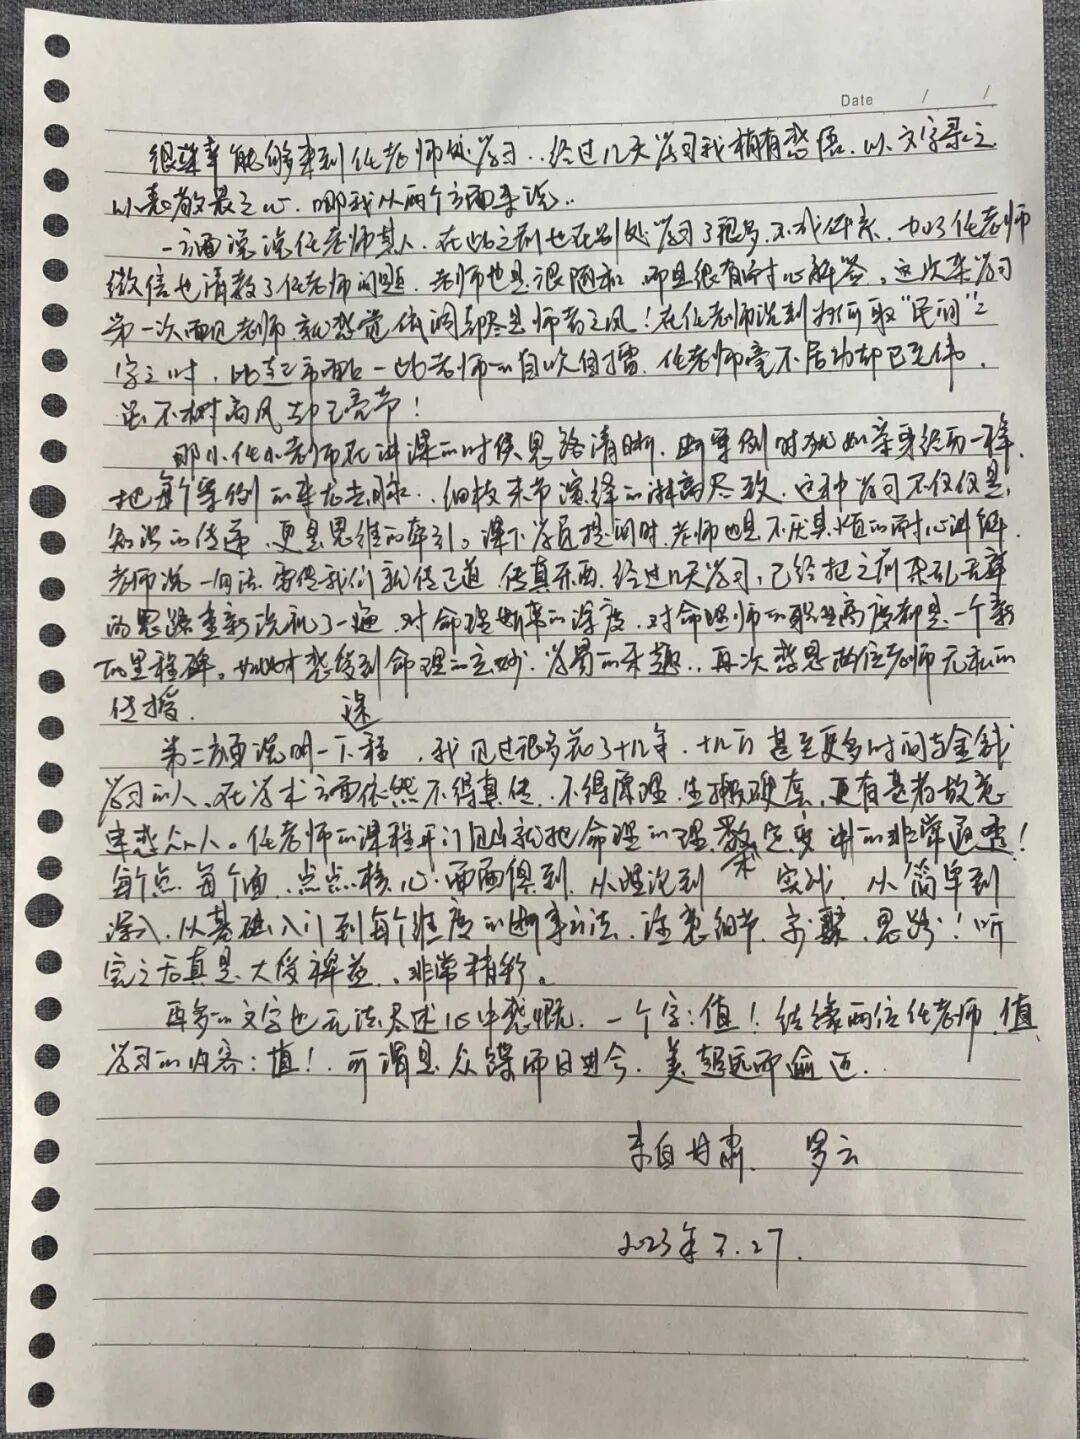 Date / /
很荣幸能够来到任老师处学习..经过几天学习我稍有感悟.以文字录之
以表敬最之心.那我从两个方面来说..
一方面说说任老师其人.在此之前也在别处学习了很多.不成体系.加了任老师
微信也请教了任老师问题.老师也是很随和 而且很有耐心解答。这次来学习
第一次面见老师.就感觉低调却尽是师者之风!在任老师说到为何取“民间”二
字之时,比起市面一些老师的自吹自擂.任老师毫不居功却已无伟.
虽不树高风却已亮节!
那小任老师在讲课的时候思路清晰.断案例时犹如亲身经历一样.
把每个案例的来龙去脉..细枝末节演绎的淋漓尽致.这种学习不仅仅是,
知识的传递.更是思维的牵引。课下学员提问时.老师也是不厌其烦的耐心讲解.
老师说一句话.需得我们就传正道.传真东西.经过几天学习,已经把之前杂乱无章
的思路重新洗礼了一遍.对命理断案的深度.对命理师的职业高度都是一个新
的里程碑。如此才感受到命理的玄妙.学易的乐趣..再次感恩两位老师无私的
传授.
第二方面说明一下课程,我见过很多花了十几年.十几万甚至更多时间与金钱
学习的人.在学术方面依然不得真传.不得原理.生搬硬套.更有甚者故意
蛊惑众人。任老师的课程开门见山就把命理的理.象定变讲的非常通透!
每个点.每个面.点点核心.面面俱到.从理论到实战.从简单到
深入.从基础入门到每个维度的断事方法.注意细节.步骤.思路!听
完之后真是大受裨益.非常精彩。
再多的文字也无法尽述心中感慨.一个字:值!结缘两位任老师.值
学习的内容:值!.可谓是众媒师日进兮.美超远而逾迈..
来自甘肃.罗云
2023年3.27.